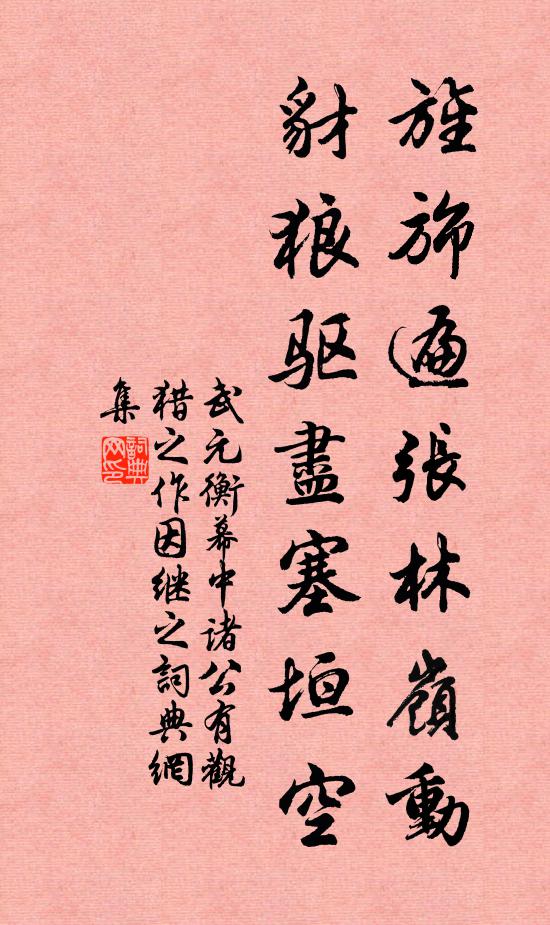 旌旆遍張林嶺動
豺狼驱盡塞垣空
武元衡幕中诸公有觀
猎之作因继之詞典網
集
詞典
网印